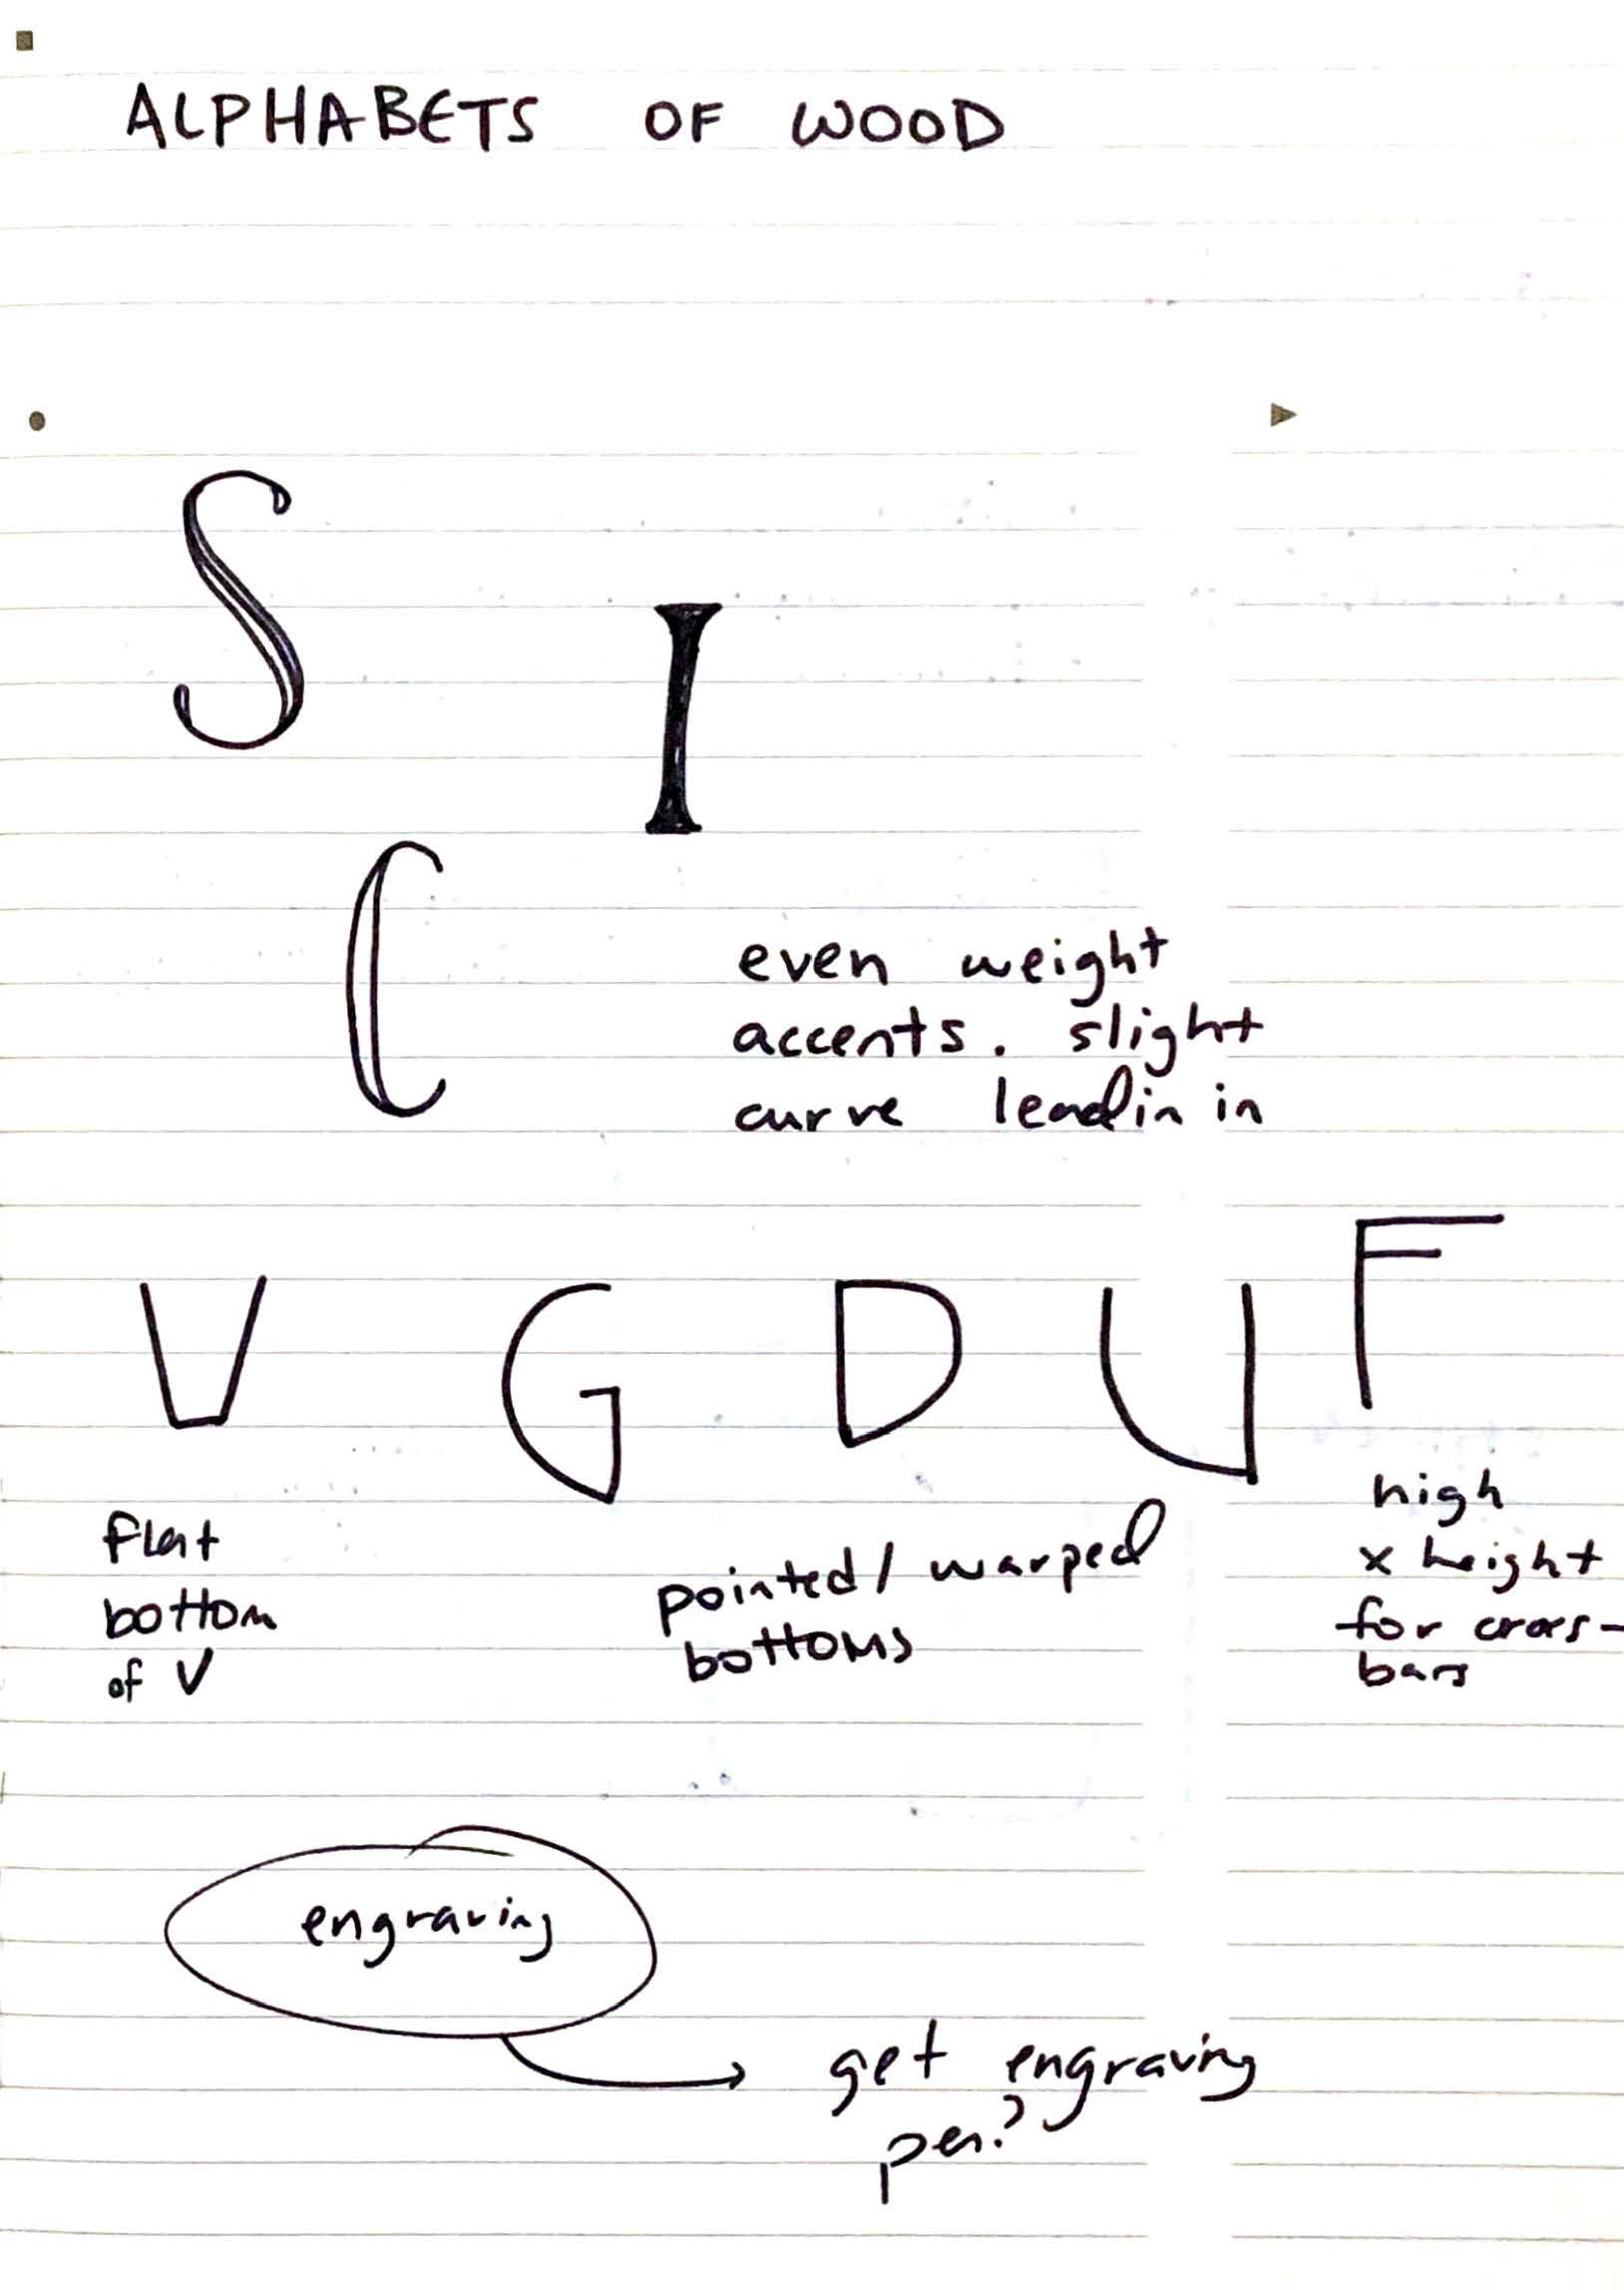 ALPHABETS OF WOOD
S
I
C
even weight
accents. slight
curve leadin in
V G D U F
flat
bottom
of V
pointed/warped
bottoms
high
x height
for cross-
bars
engraving
get engraving
pen?